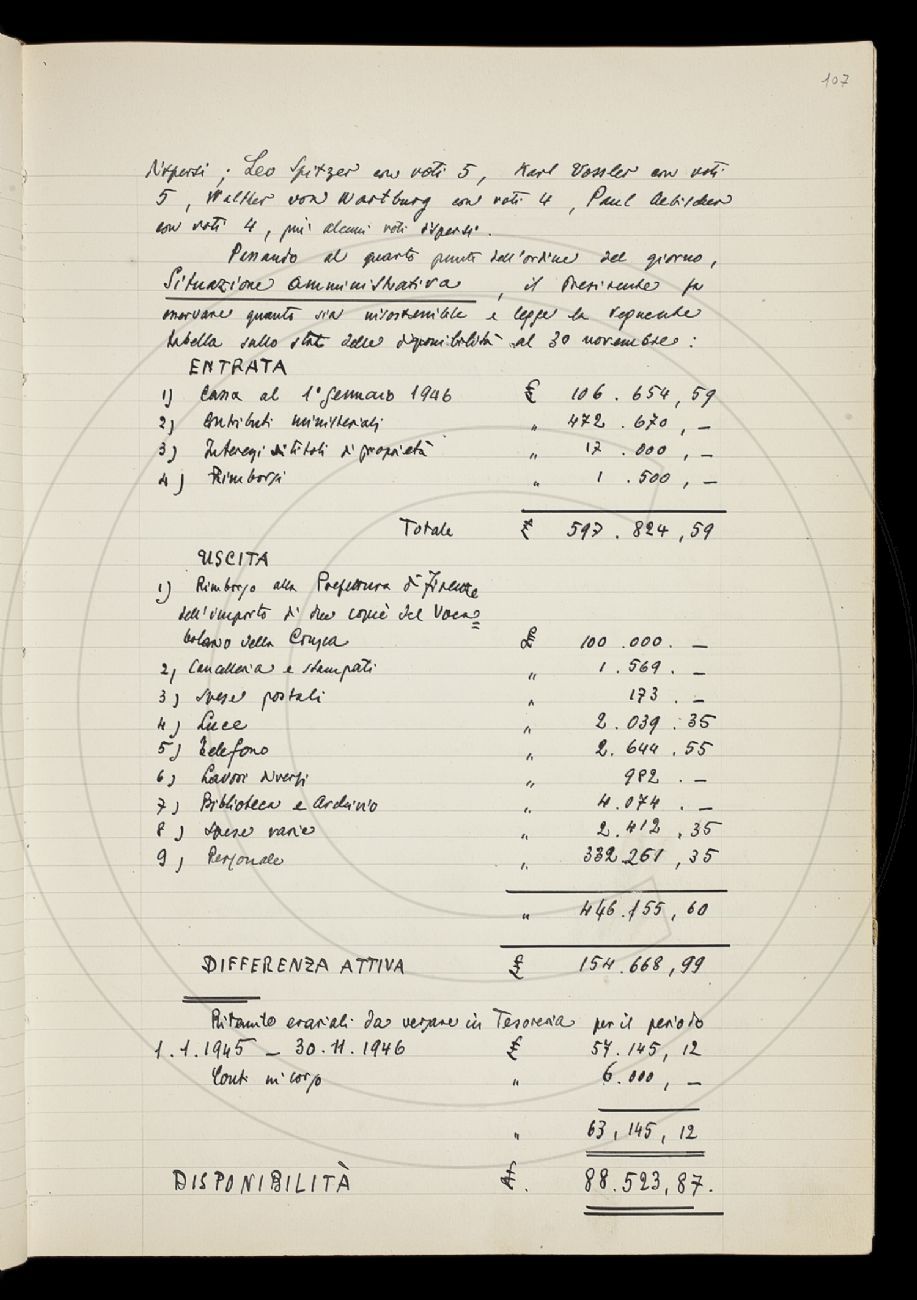 107
dispersi; Leo Spitzer con voti 5, Karl Vossler con voti
5, Walther von Wartburg con voti 4, Paul Aebischer
con voti 4, più alcuni voti dispersi.
Passando al quarto punto dell'ordine del giorno,
Situazione amministrativa, il Presidente fa
osservare quanto sia insostenibile e legge la seguente
tabella sullo stato delle disponibilità al 30 novembre:
ENTRATA
1) Cassa al 1° Gennaio 1946 £ 106.654,59
2) Contributi ministeriali " 472.670,—
3) Interessi di titoli di proprietà " 17.000,—
4) Rimborsi " 1.500,—
Totale £ 597.824,59
USCITA
1) Rimborso alla Prefettura di Firenze
dell'importo di due copie del Voca=
bolario della Crusca £ 100.000.—
2) Cancelleria e stampati " 1.569.—
3) Spese postali " 173.—
4) Luce " 2.039.35
5) Telefono " 2.644.55
6) Lavori diversi " 982.—
7) Biblioteca e Archivio " 4.074.—
8) Spese varie " 2.412,35
9) Personale " 332.261,35
" 446.155,60
DIFFERENZA ATTIVA £ 154.668,99
Ritenute erariali da versare in Tesoreria per il periodo
1.1.1945 — 30.11.1946 £ 57.145,12
Conti in corso " 6.000,—
" 63,145,12
DISPONIBILITÀ £. 88.523,87.